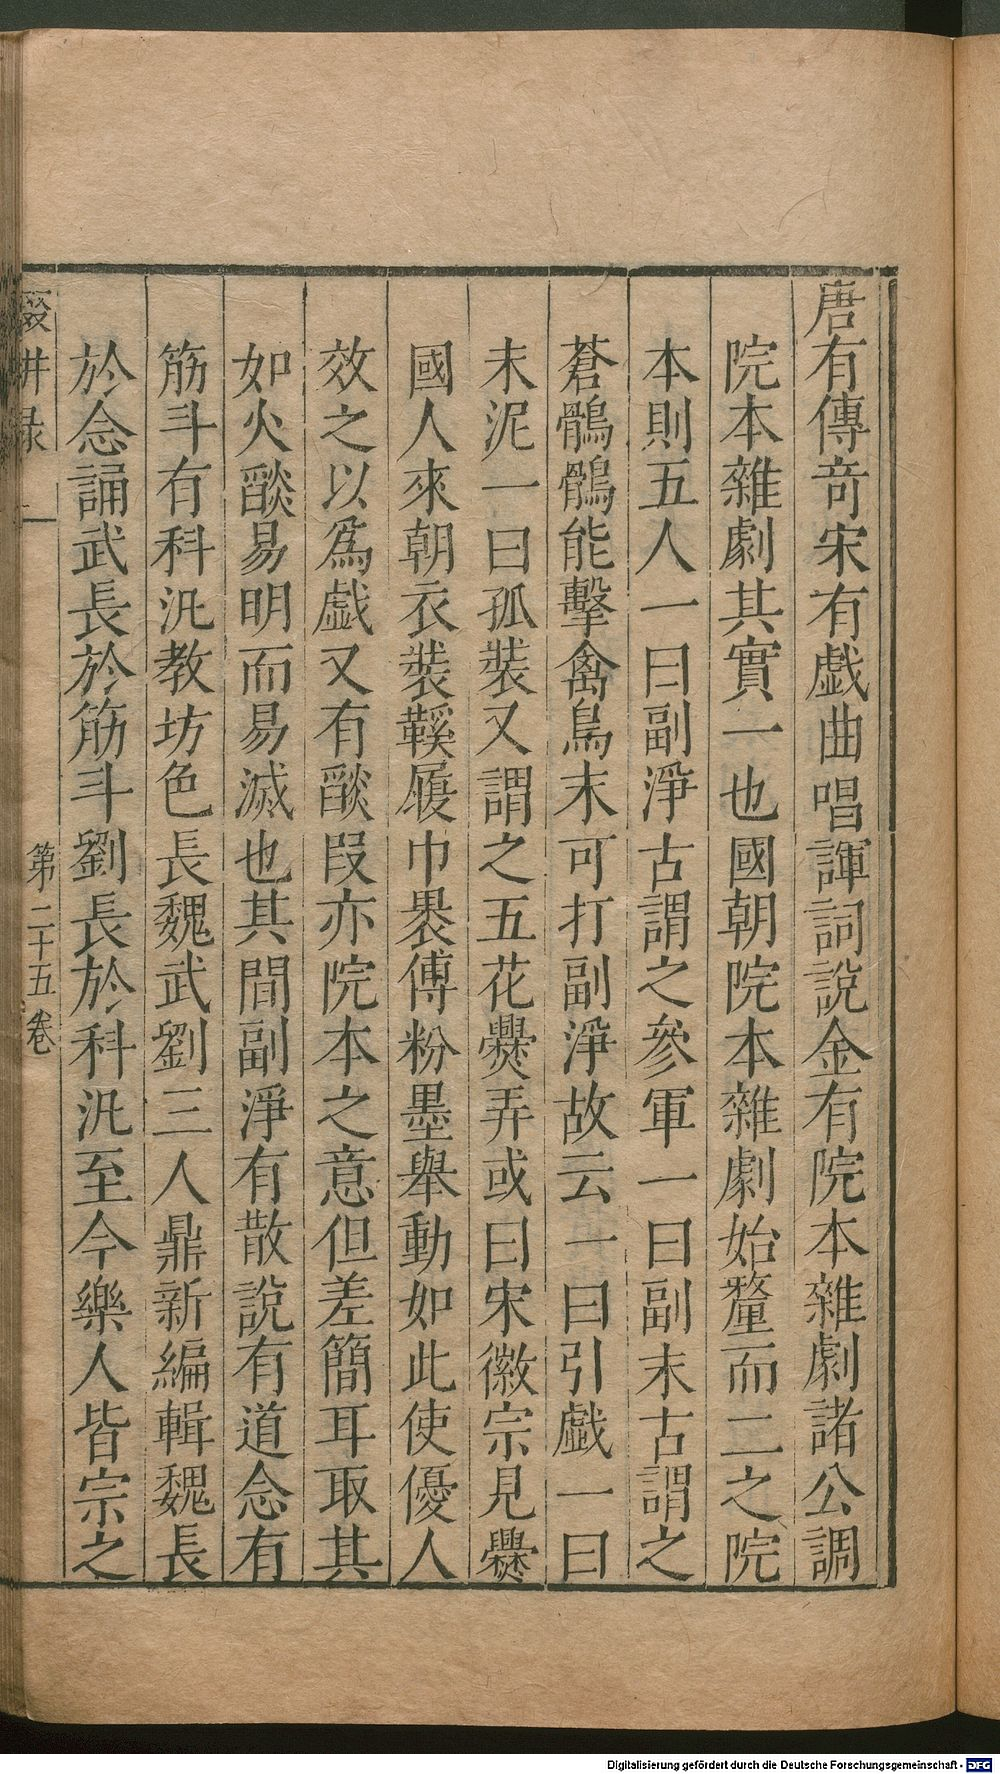 唐有傳奇宋有戯曲唱諢詞說金有院本雜劇諸公調
院本雜劇其實一也國朝院本雜劇始釐而二之院
本則五人一曰副淨古謂之參軍一曰副末古謂之
蒼鶻鶻能擊禽鳥末可打副淨故云一曰引戯一曰
末泥一曰孤裝又謂之五花爨弄或曰宋徽宗見爨
國人來朝衣裝鞵履巾裹傅粉墨舉動如此使優人
效之以爲戯又有燄段亦院本之意但差簡耳取其
如火燄易明而易滅也其間副淨有散說有道念有
筋斗有科汎教坊色長魏武劉三人鼎新編輯魏長
於念誦武長於筋斗劉長於科汎至今樂人皆宗之
第二十五卷
Digitalisierung gefördert durch die Deutsche Forschungsgemeinschaft - DFG